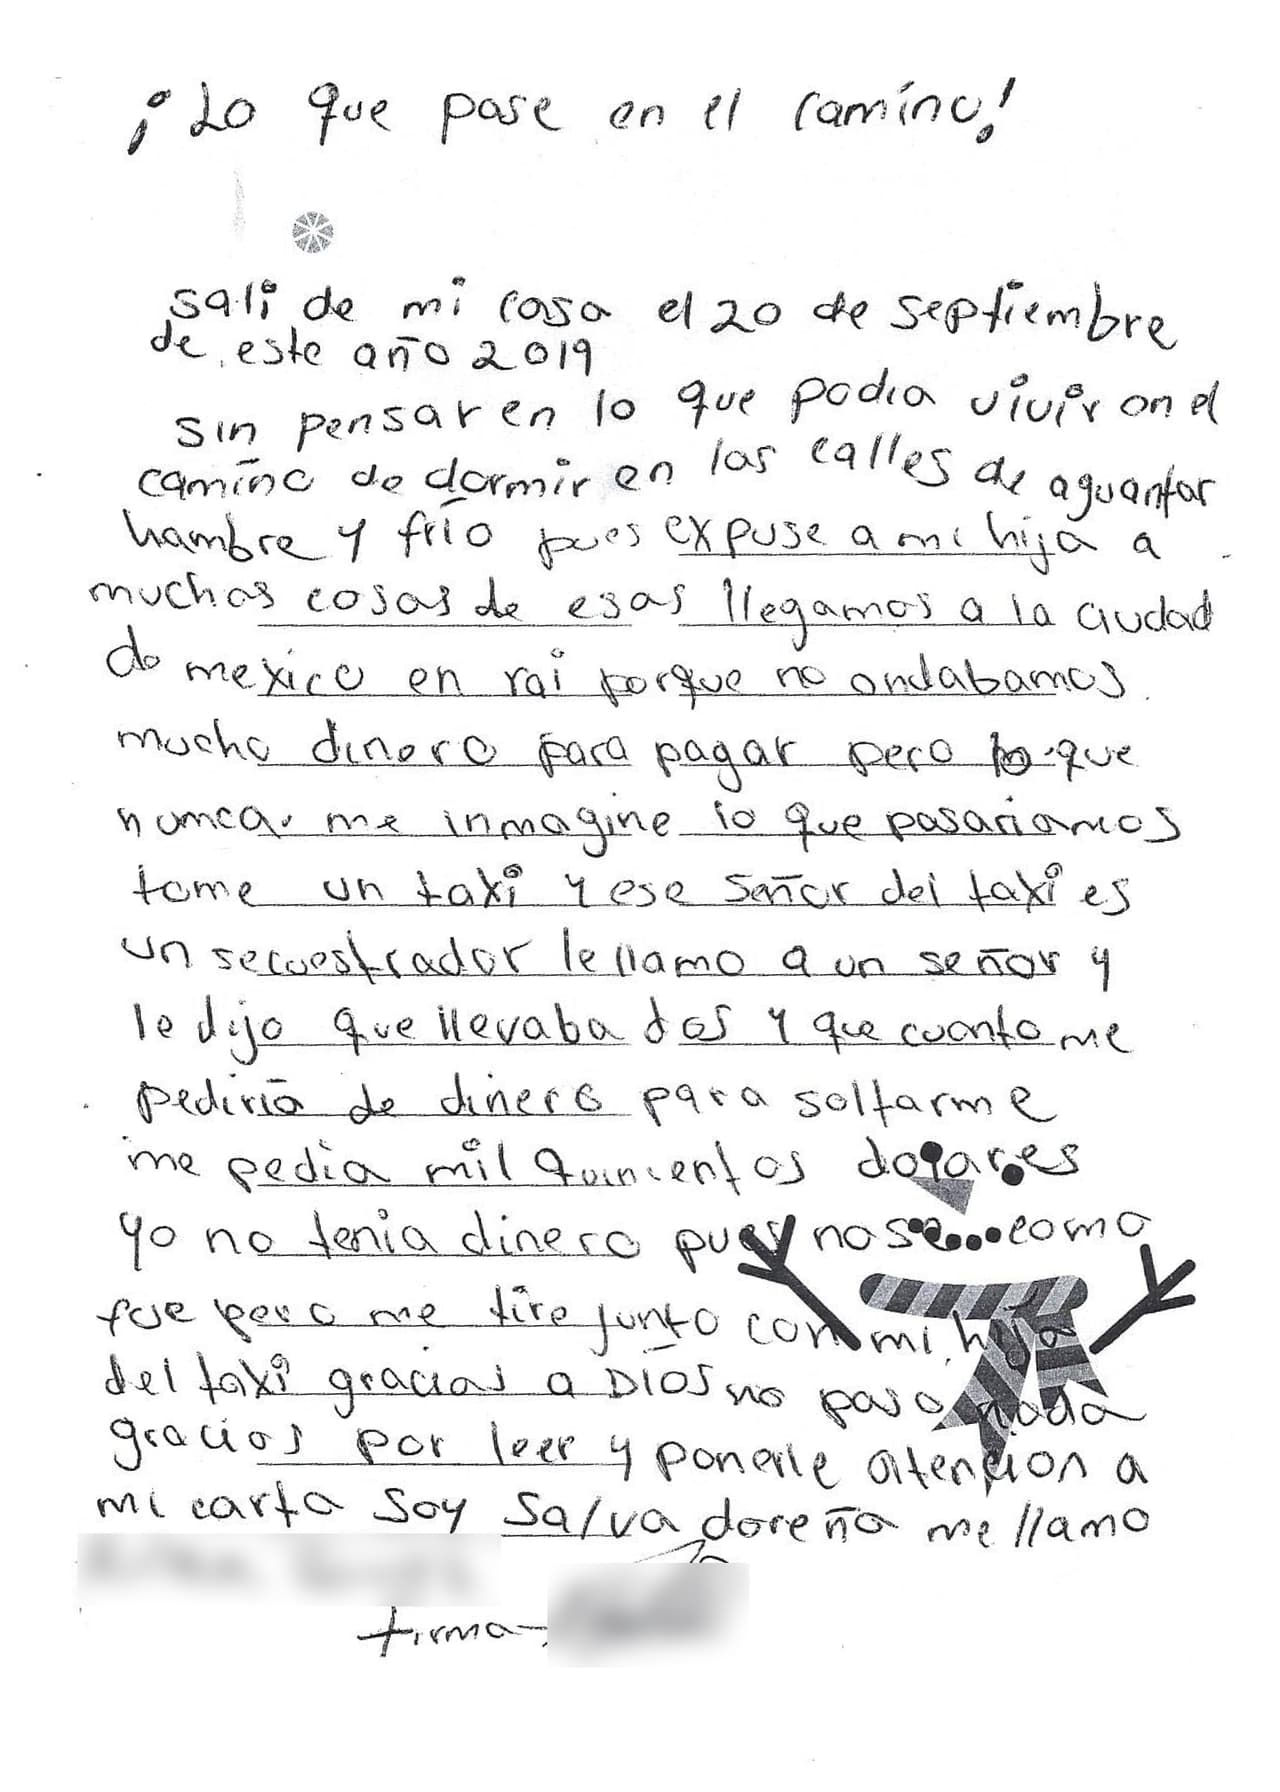 ¡Lo que pase en el camino!
sali de mi casa el 20 de septiembre
de este año 2019
sin pensar en lo que podia vivir en el
camino de dormir en las calles de aguantar
hambre y frio pues expuse a mi hija a
muchas cosas de esas llegamos a la ciudad
de mexico en rai porque no andabamos
mucho dinero para pagar pero lo que
nunca me inmagine lo que pasariamos
tome un taxi y ese señor del taxi es
un secuestrador le llamo a un señor y
le dijo que llevaba dos y que cuanto me
pediria de dinero para soltarme
me pedia mil quinientos dolares
yo no tenia dinero pues no se como
fue pero me tire junto con mi hija
del taxi gracias a Dios no paso nada
gracias por leer y ponerle atencion a
mi carta soy Salvadoreña me llamo
firma